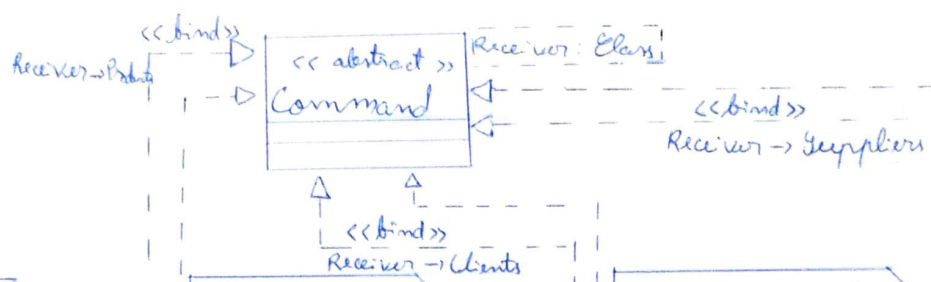 <<bind>>
Receiver→Products
<< abstract >>
Command
Receiver: Class
<<bind>>
Receiver → Suppliers
<<bind>>
Receiver → Clients